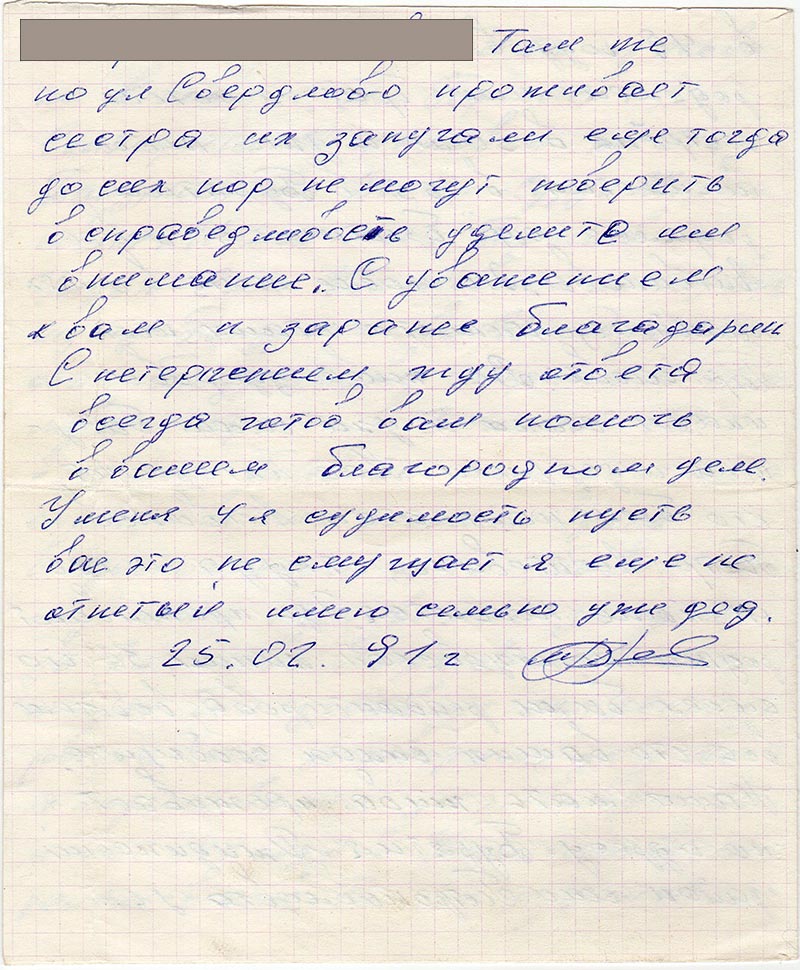 Там же
по ул Свердлов-о проживает
сестра их запугали еще тогда
до сих пор не могут поверить
в справедливость уделите им
внимание. С уважением
к вам и заранее благодарин
С нетерпением жду ответа
всегда готов вам помочь
в вашем благородном деле.
У меня 4 я судимость пусть
вас это не смущает я еще не
отпетый имею семью уже дед.
25.02.91 г